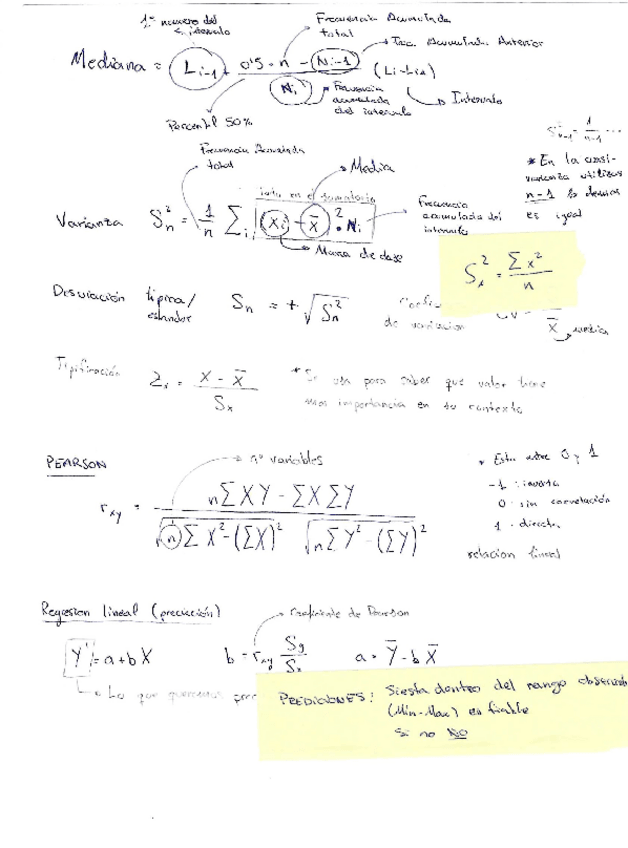 1er numero del
intervalo
Frecuencia Acumulada
total
Frec. Acumulada Anterior
Mediana = Li-1 + 0'5 · n - Ni-1 (Li - Li-1)
Ni
Frecuencia
acumulada
del intervalo
Intervalo
Percentil 50%
Frecuencia Acumulada
total
Media
S²n-1 = 1/n-1 ...
* En la cuasi-
varianza utilizas
n-1 lo demas
es igual
todo en el sumatorio
Varianza S²n = 1/n Σi (Xi - X̄)² · Ni
Frecuencia
acumulada del
intervalo
Marca de clase
Sx² = Σx²/n
Desviación tipica/
estandar
Sn = + √S²n
de variacion
CV =
X̄ media
Tipificación Zx = X - X̄ / Sx
* Se usa para saber que valor tiene
mas importancia en su contexto
PEARSON
nº variables
rxy = nΣXY - ΣXΣY
√nΣX²-(ΣX)² √nΣY²-(ΣY)²
* Esta entre 0 y 1
-1 : inversa
0 : sin correlación
1 - directa
relacion lineal
Regresion lineal (predicción)
Coeficiente de Pearson
Y' = a + bX b = rxy Sy/Sx a = Ȳ - b X̄
Lo que queremos
PREDICIONES: Si esta dentro del rango
(Min-Max) es fiable
Si no NO